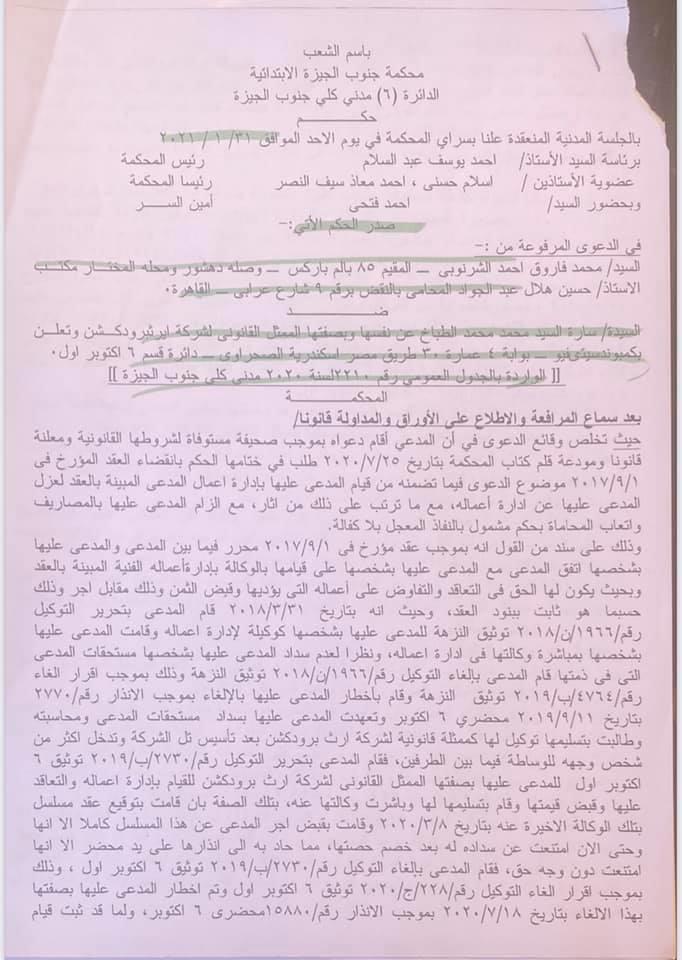 باسم الشعب
محكمة جنوب الجيزة الابتدائية
الدائرة (٦) مدني كلي جنوب الجيزة
حكـــــــــم
بالجلسة المدنية المنعقدة علنا بسراي المحكمة في يوم الاحد الموافق ٣١/ ١ / ٢٠٢١
برئاسة السيد الأستاذ/ احمد يوسف عبد السلام رئيس المحكمة
عضوية الأستاذين / اسلام حسنى ، احمد معاذ سيف النصر رئيسا المحكمة
وبحضور السيد/ احمد فتحى أمين الســـر
صدر الحكم الأتي:-
في الدعوى المرفوعة من :-
السيد/ محمد فاروق احمد الشرنوبى ــ المقيم ٨٥ بالم باركس ــ وصله دهشور ومحله المختار مكتب
الاستاذ/ حسين هلال عبد الجواد المحامى بالنقض برقم ٩ شارع عرابى ــ القاهرة٠
ضــــد
السيدة/ سارة السيد محمد محمد الطباخ عن نفسها وبصفتها الممثل القانونى لشركة ايرثبرودكشن وتعلن
بكمبوندسيتىفيو ــ بوابة ٤ عمارة ٣٠ طريق مصر اسكندرية الصحراوى ــ دائرة قسم ٦ اكتوبر اول٠
[[ الواردة بالجدول العمومي رقم ٢٢١٠لسنة ٢٠٢٠ مدني كلي جنوب الجيزة ]]
المحكمـــــــــة
بعد سماع المرافعة والاطلاع علي الأوراق والمداولة قانونا/
حيث تخلص وقائع الدعوى في أن المدعي أقام دعواه بموجب صحيفة مستوفاة لشروطها القانونية ومعلنة
قانونا ومودعة قلم كتاب المحكمة بتاريخ ٢٠٢٠/٧/٢٥ طلب في ختامها الحكم بانقضاء العقد المؤرخ فى
٢٠١٧/٩/١ موضوع الدعوى فيما تضمنه من قيام المدعى عليها بإدارة اعمال المدعى المبينة بالعقد لعزل
المدعى عليها عن ادارة أعماله، مع ما ترتب على ذلك من اثار، مع الزام المدعى عليها بالمصاريف
واتعاب المحاماة بحكم مشمول بالنفاذ المعجل بلا كفالة.
وذلك على سند من القول انه بموجب عقد مؤرخ فى ٢٠١٧/٩/١ محرر فيما بين المدعى والمدعى عليها
بشخصها اتفق المدعى مع المدعى عليها بشخصها على قيامها بالوكالة بإدارةأعماله الفنية المبينة بالعقد
وبحيث يكون لها الحق فى التعاقد والتفاوض على أعماله التى يؤديها وقبض الثمن وذلك مقابل اجر وذلك
حسبما هو ثابت ببنود العقد، وحيث انه بتاريخ ٢٠١٨/٣/٣١ قام المدعى بتحرير التوكيل
رقم/١٩٦٦/ن/٢٠١٨ توثيق النزهة للمدعى عليها بشخصها كوكيلة لإدارة اعماله وقامت المدعى عليها
بشخصها بمباشرة وكالتها فى ادارة اعماله، ونظرا لعدم سداد المدعى عليها بشخصها مستحقات المدعى
التى فى ذمتها قام المدعى بإلغاء التوكيل رقم/١٩٦٦/ن/٢٠١٨ توثيق النزهة وذلك بموجب اقرار الغاء
رقم/٤٧٦٤/ب/٢٠١٩ توثيق النزهة وقام بأخطار المدعى عليها بالإلغاء بموجب الانذار رقم/٢٧٧٠
بتاريخ ٢٠١٩/٩/١١ محضري ٦ اكتوبر وتعهدت المدعى عليها بسداد مستحقات المدعى ومحاسبته
وطالبت بتسليمها توكيل لها كممثلة قانونية لشركة ارث برودكشن بعد تأسيس تل الشركة وتدخل اكثر من
شخص وجهه للوساطة فيما بين الطرفين، فقام المدعى بتحرير التوكيل رقم/٢٧٣٠/ب/٢٠١٩ توثيق ٦
اكتوبر اول للمدعى عليها بصفتها الممثل القانونى لشركة ارث برودكشن للقيام بإدارة اعماله والتعاقد
عليها وقبض قيمتها وقام بتسليمها لها وباشرت وكالتها عنه، بتلك الصفة بان قامت بتوقيع عقد مسلسل
بتلك الوكالة الاخيرة عنه بتاريخ ٢٠٢٠/٣/٨ وقامت بقبض اجر المدعى عن هذا المسلسل كاملا الا انها
وحتى الان امتنعت عن سداده له بعد خصم حصتها، مما حاد به الى انذارها على يد محضر الا انها
امتنعت دون وجه حق، فقام المدعى بإلغاء التوكيل رقم/٢٧٣٠/ب/٢٠١٩ توثيق ٦ اكتوبر اول ، وذلك
بموجب اقرار الغاء التوكيل رقم/٢٢٨/ج/٢٠٢٠ توثيق ٦ اكتوبر اول وتم اخطار المدعى عليها بصفتها
بهذا الالغاء بتاريخ ٢٠٢٠/٧/١٨ بموجب الانذار رقم/١٥٨٨٠محضرى ٦ اكتوبر، ولما قد ثبت قيام